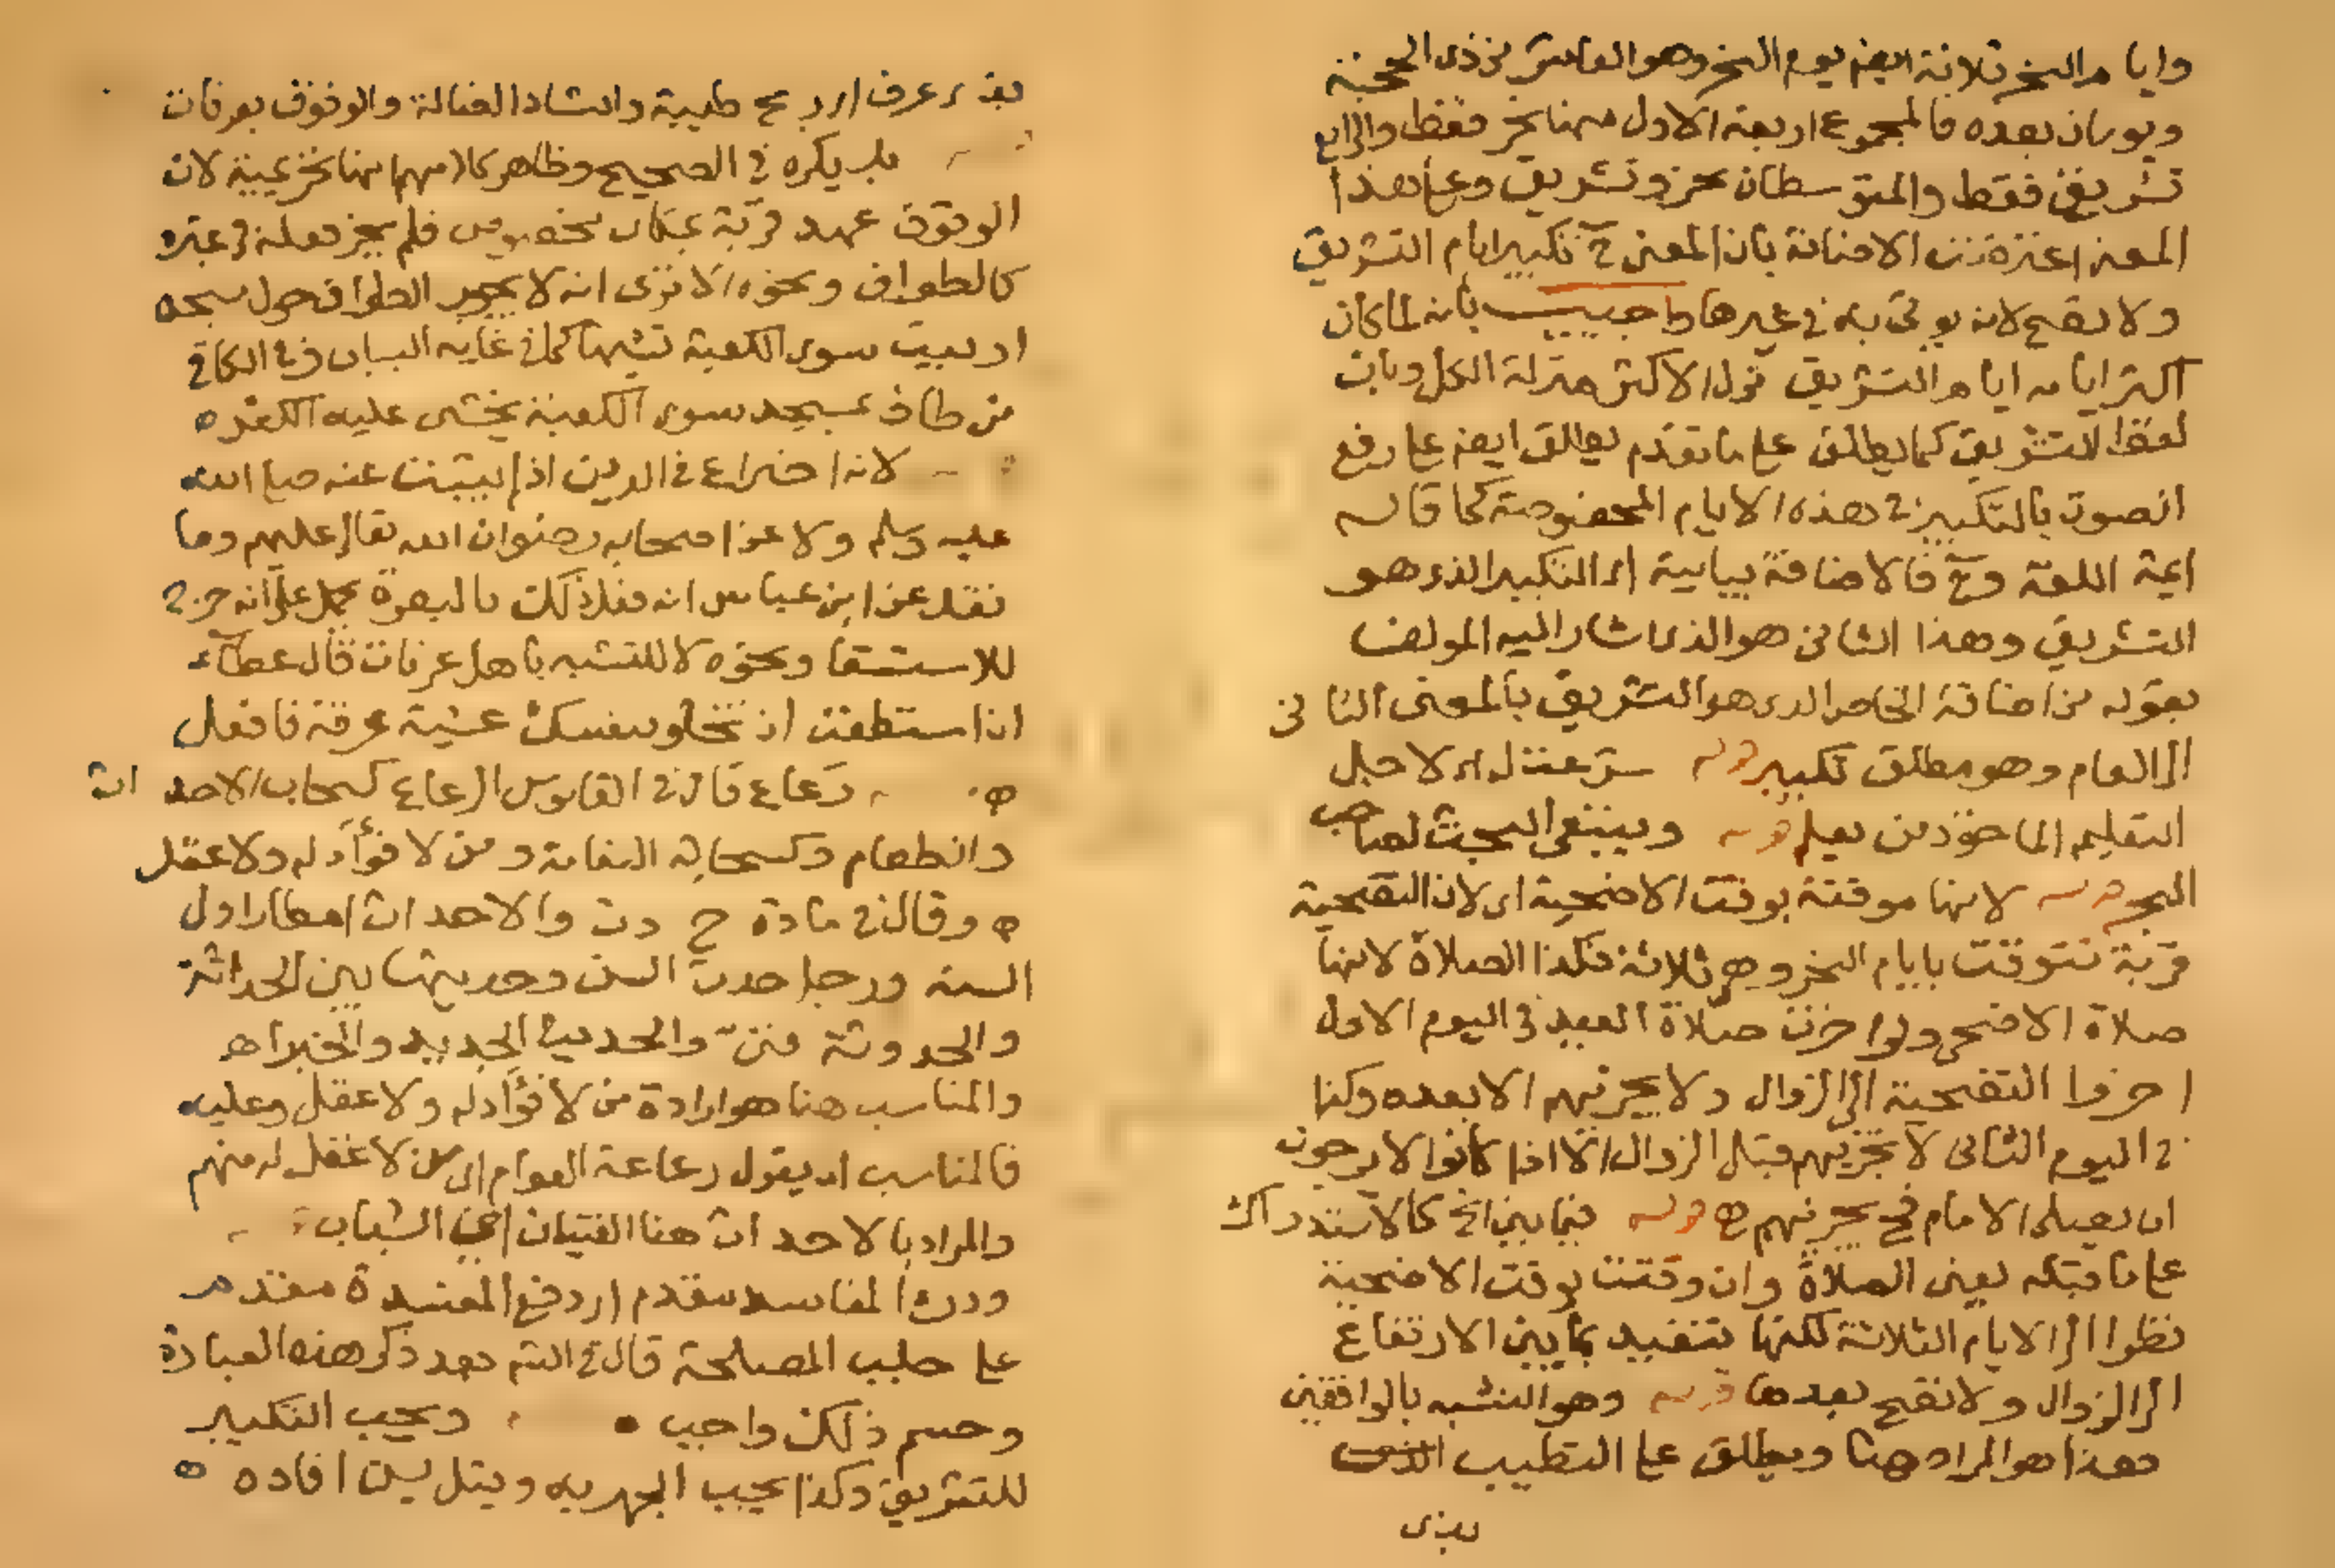 وايام النحر ثلاثة ايضم يوم النحر وهو العاشر من ذى الحجة
ويومان بعده فالمجموع اربعة الاول منها نحر فقط والرابع
تشريق فقط والمتوسطان نحر وتشريق وعلى هذا
المعنى اعترضت الاضافة بان المعنى ح تكبير ايام التشريق
ولا يصح لانه يؤتى به فى غيرها واجيب بانه لما كان
اكثر ايامه ايام التشريق نزل الاكثر منزلة الكل وبان
لفظ التشريق كما يطلق على ما تقدم يطلق ايضم على رفع
الصوت بالتكبير فى هذه الايام المخصوصة كما قاله
ايمة اللغة وح فالاضافة بيانية اى التكبير الذى هو
التشريق وهذا الثانى هو الذى اشار اليه المولف
بقوله من اضافة الخاص الذى هو التشريق بالمعنى الثانى
الى العام وهو مطلق تكبير قوله لاجل
التعليم الماخوذ من يعلم قوله وينبغى البحث لصاحب
البحر قوله لانها موقتة بوقت الاضحية اى لان التضحية
قربة تتوقت بايام النحر وهى ثلاثة فكذا الصلاة لانها
صلاة الاضحى ولو اخرت صلاة العيد فى اليوم الاول
اخروا التضحية الى الزوال ولا يجزيهم الا بعده وكذا
فى اليوم الثانى لا تجزيهم قبل الزوال الا اذا كانوا لا يرجون
ان يصلى الامام فح يجزيهم ح قوله فيما بين الخ كالاستدراك
على ما قبله يعنى الصلاة وان وقتت بوقت الاضحية
نظرا الى الايام الثلاثة لكنها تتقيد بما بين الارتفاع
الى الزوال ولا تصح بعدها قوله وهو التشبه بالواقفين
وهذا هو المراد هنا ويطلق على التطييب
عرف اى ريح طيبة وانشاد الضالة والوقوف بعرفات
بل يكره فى الصحيح وظاهر كلامهم انها تحريمية لان
الوقوف عهد قربة بمكان مخصوص فلم يجز فعله فى غيره
كالطواف ونحوه الا ترى انه لا يجوز الطواف حول مسجد
او بيت سوى الكعبة تشبها كمل فى غاية البيان وفى الكافى
من طاف بمسجد سوى الكعبة يخشى عليه الكفر ه
لانه اختراع فى الدين اذ لم يثبت عنه صلى الله
عليه وسلم ولا عن اصحابه رضوان الله تعالى عليهم وما
نقل عن ابن عباس انه فعل ذلك بالبصرة يحمل على انه خرج
للاستسقا ونحوه لا للتشبه باهل عرفات قال عطآء
ان استطعت ان تخلو بنفسك عشية عرفة فافعل
ه رعاع قال فى القاموس الرعاع كسحاب الاحداث
والطعام وكسحابة النعامة ومن لا فؤاد له ولا عقل
ه وقال فى مادة ح د ث والاحداث امطار اول
السنة ورجل حدث السن وحديثها بين الحداثة
والحدوثة فتى والحديث الجديد والخبر اه
والمناسب هنا هو ارادة من لا فؤاد له ولا عقل وعليه
فالمناسب ان يقول رعاعة العوام اى من لا عقل له منهم
والمراد بالاحداث هنا الفتيان اى الشباب
ودرء المفاسد مقدم اى دفع المفسدة مقدم
على جلب المصلحة قال فى النهر بعد ذكر هذه العبارة
وحسم ذلك واجب ويجب التكبير
للتشريق وكذا يجب الجهر به وقيل يسن افاده ه